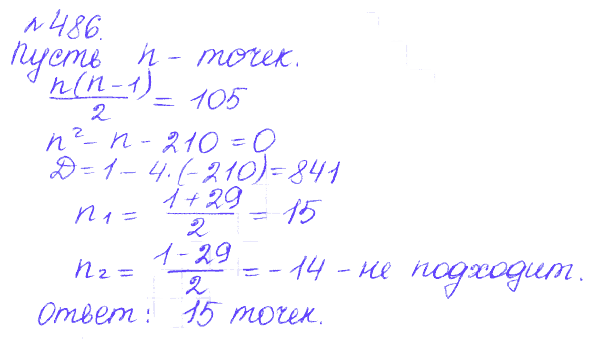 №486.
Пусть n - точек.
n(n-1)/2 = 105
n² - n - 210 = 0
D = 1 - 4·(-210) = 841
n₁ = (1+29)/2 = 15
n₂ = (1-29)/2 = -14 - не подходит.
Ответ: 15 точек.